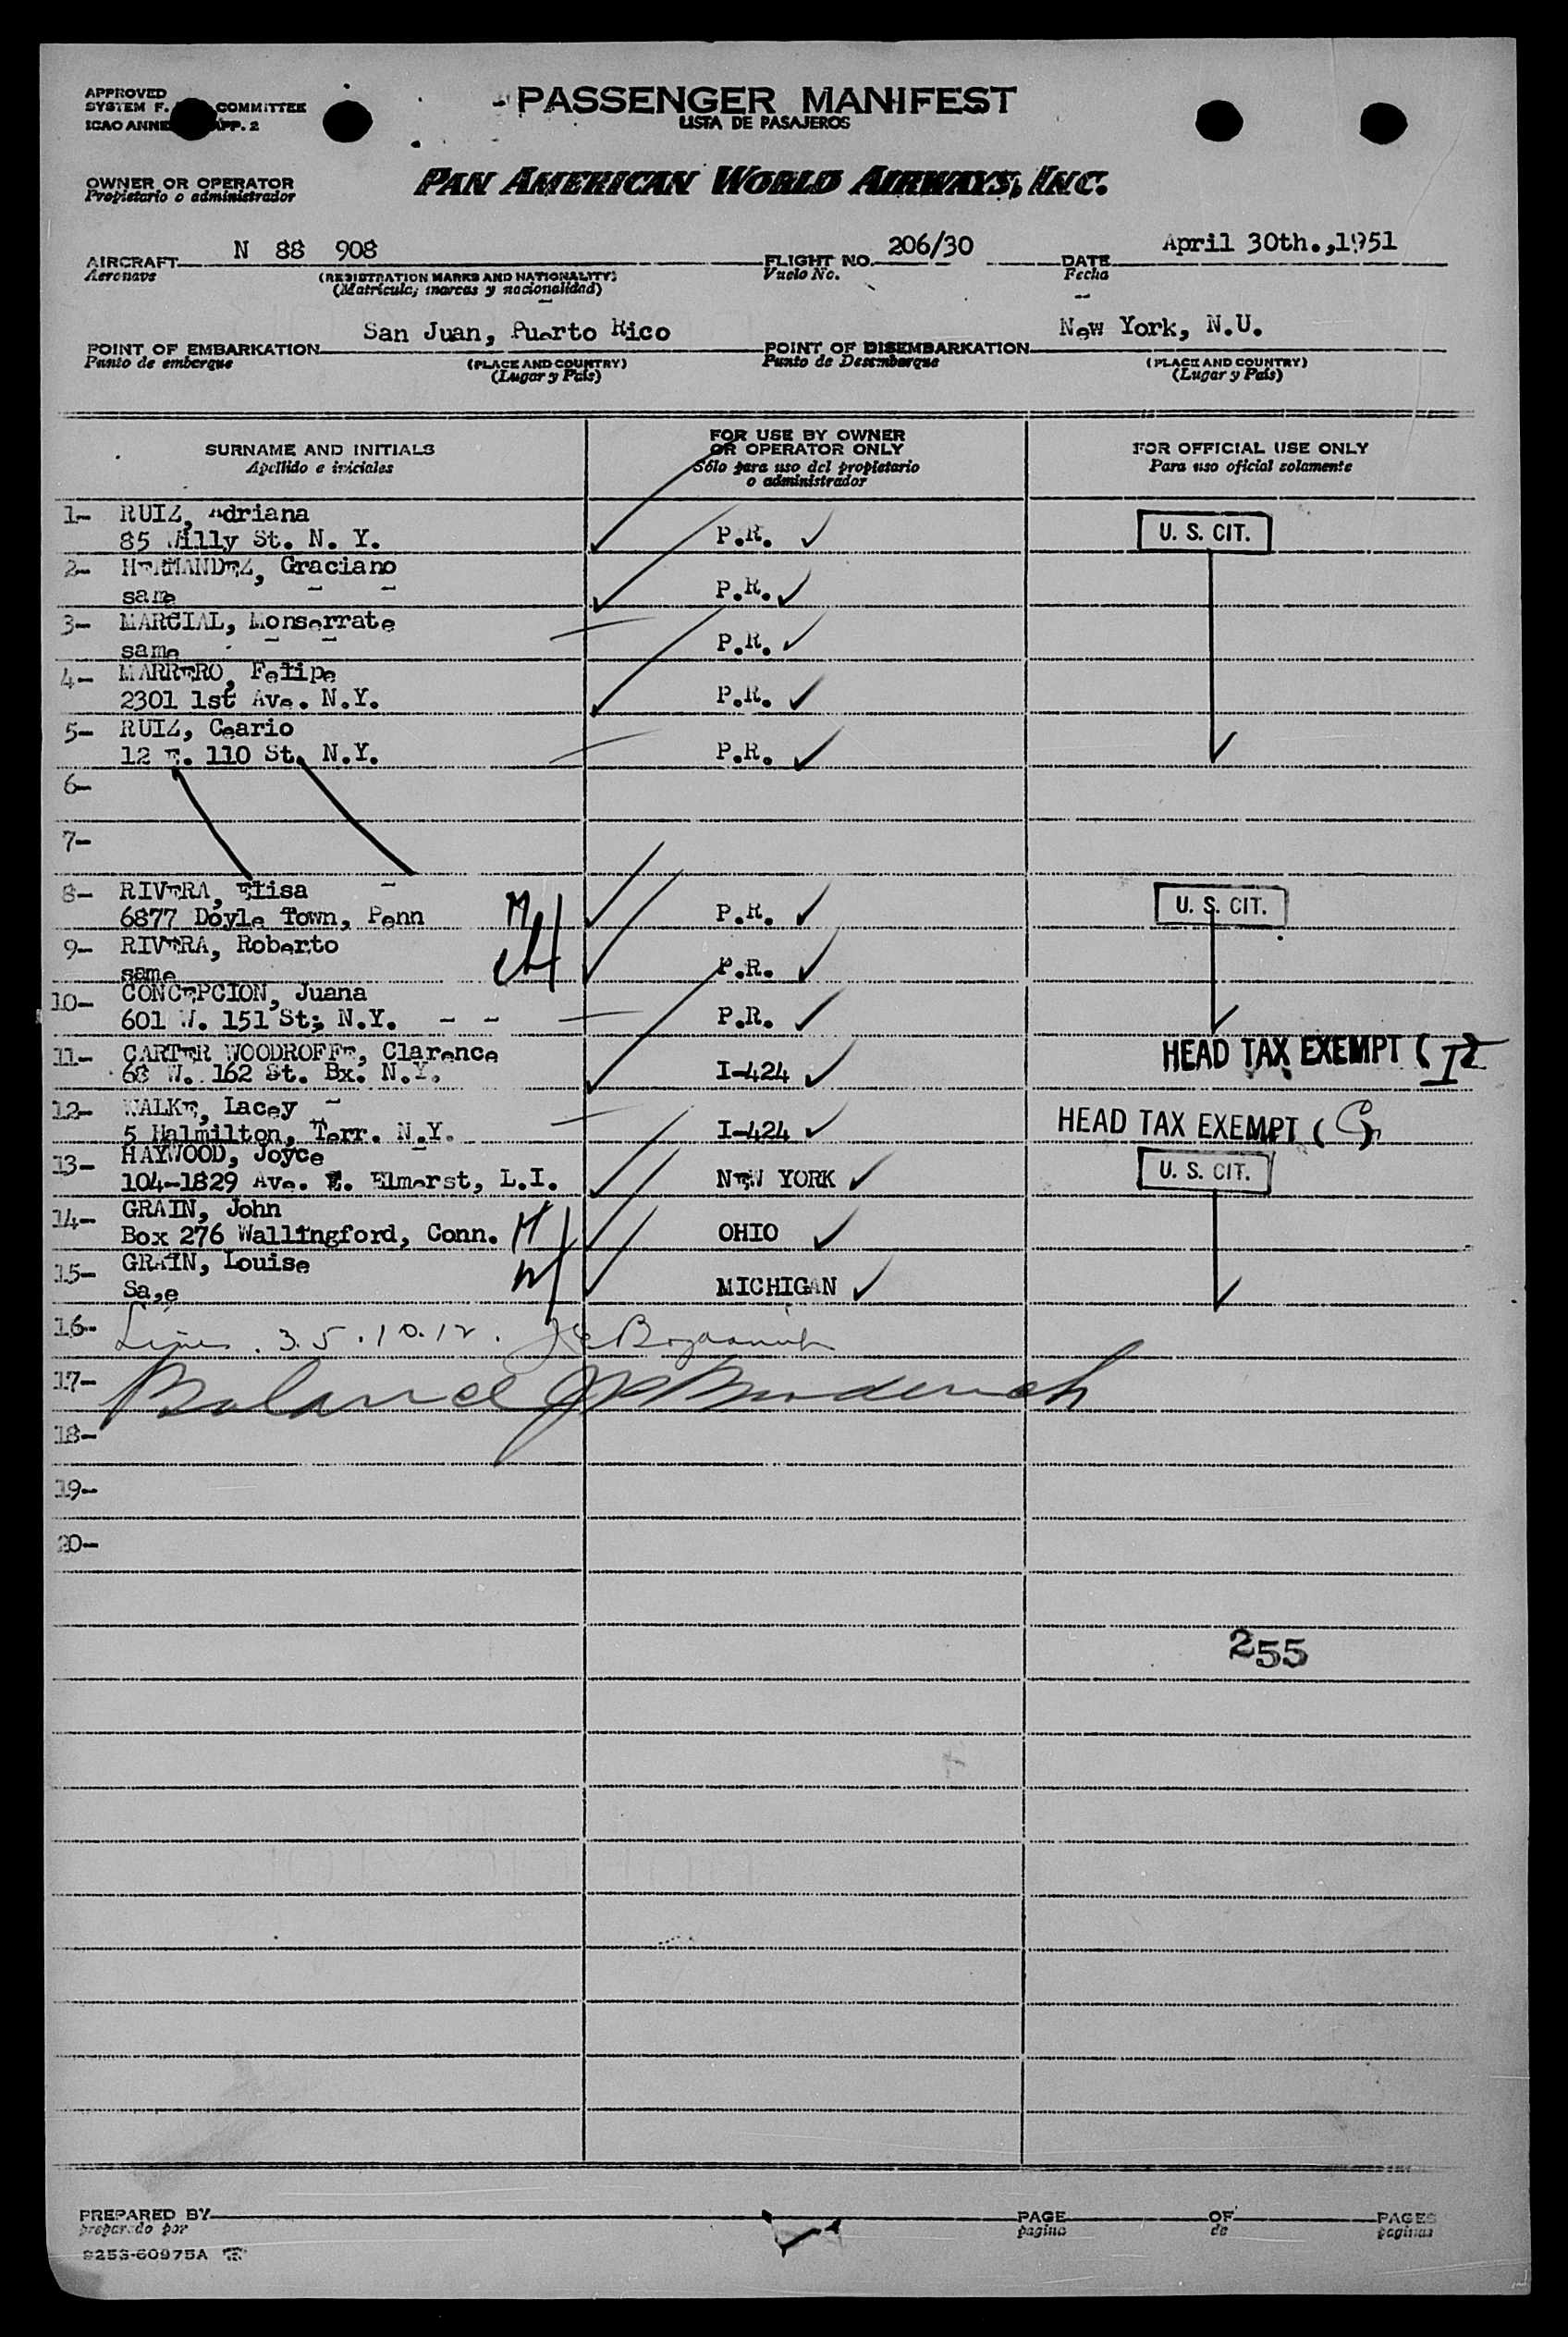 APPROVED
SYSTEM F. COMMITTEE
ICAO ANNE APP. 2
PASSENGER MANIFEST
LISTA DE PASAJEROS
OWNER OR OPERATOR
Propietario o administrador
PAN AMERICAN WORLD AIRWAYS, INC.
AIRCRAFT N 88 908 FLIGHT NO. 206/30 DATE April 30th.,1951
Aeronave (REGISTRATION MARKS AND NATIONALITY) Vuelo No. Fecha
(Matricula, marcas y nacionalidad)
POINT OF EMBARKATION San Juan, Puerto Rico POINT OF DISEMBARKATION New York, N.U.
Punto de emberque (PLACE AND COUNTRY) Punto de Desembarque (PLACE AND COUNTRY)
(Lugar y País) (Lugar y País)
SURNAME AND INITIALS
Apellido e iniciales
FOR USE BY OWNER
OR OPERATOR ONLY
Sólo para uso del propietario
o administrador
FOR OFFICIAL USE ONLY
Para uso oficial solamente
1- RUIZ, Adriana
85 Willy St. N. Y. P.R. U. S. CIT.
2- HERMANDEZ, Graciano
same P.R.
3- MARCIAL, Monserrate
same P.R.
4- MARRERO, Felipe
2301 1st Ave. N.Y. P.R.
5- RUIZ, Ceario
12 E. 110 St. N.Y. P.R.
6-
7-
8- RIVERA, Elisa
6877 Doyle Town, Penn P.R. U. S. CIT.
9- RIVERA, Roberto
same P.R.
10- CONCEPCION, Juana
601 W. 151 St; N.Y. - - P.R.
11- CARTER WOODROFFE, Clarence
68 W. 162 St. Bx. N.Y. I-424 HEAD TAX EXEMPT (
12- WALKE, Lacey
5 Halmilton, Terr. N.Y. I-424 HEAD TAX EXEMPT (
13- HAYWOOD, Joyce
104-1829 Ave. E. Elmerst, L.I. NEW YORK U. S. CIT.
14- GRAIN, John
Box 276 Wallingford, Conn. OHIO
15- GRAIN, Louise
Sa,e MICHIGAN
16- Lines . 3. 5. 10. 12.
17- Balance
18-
19-
20-
255
PREPARED BY PAGE OF PAGES
preparado por pagina de paginas
9253-60975A